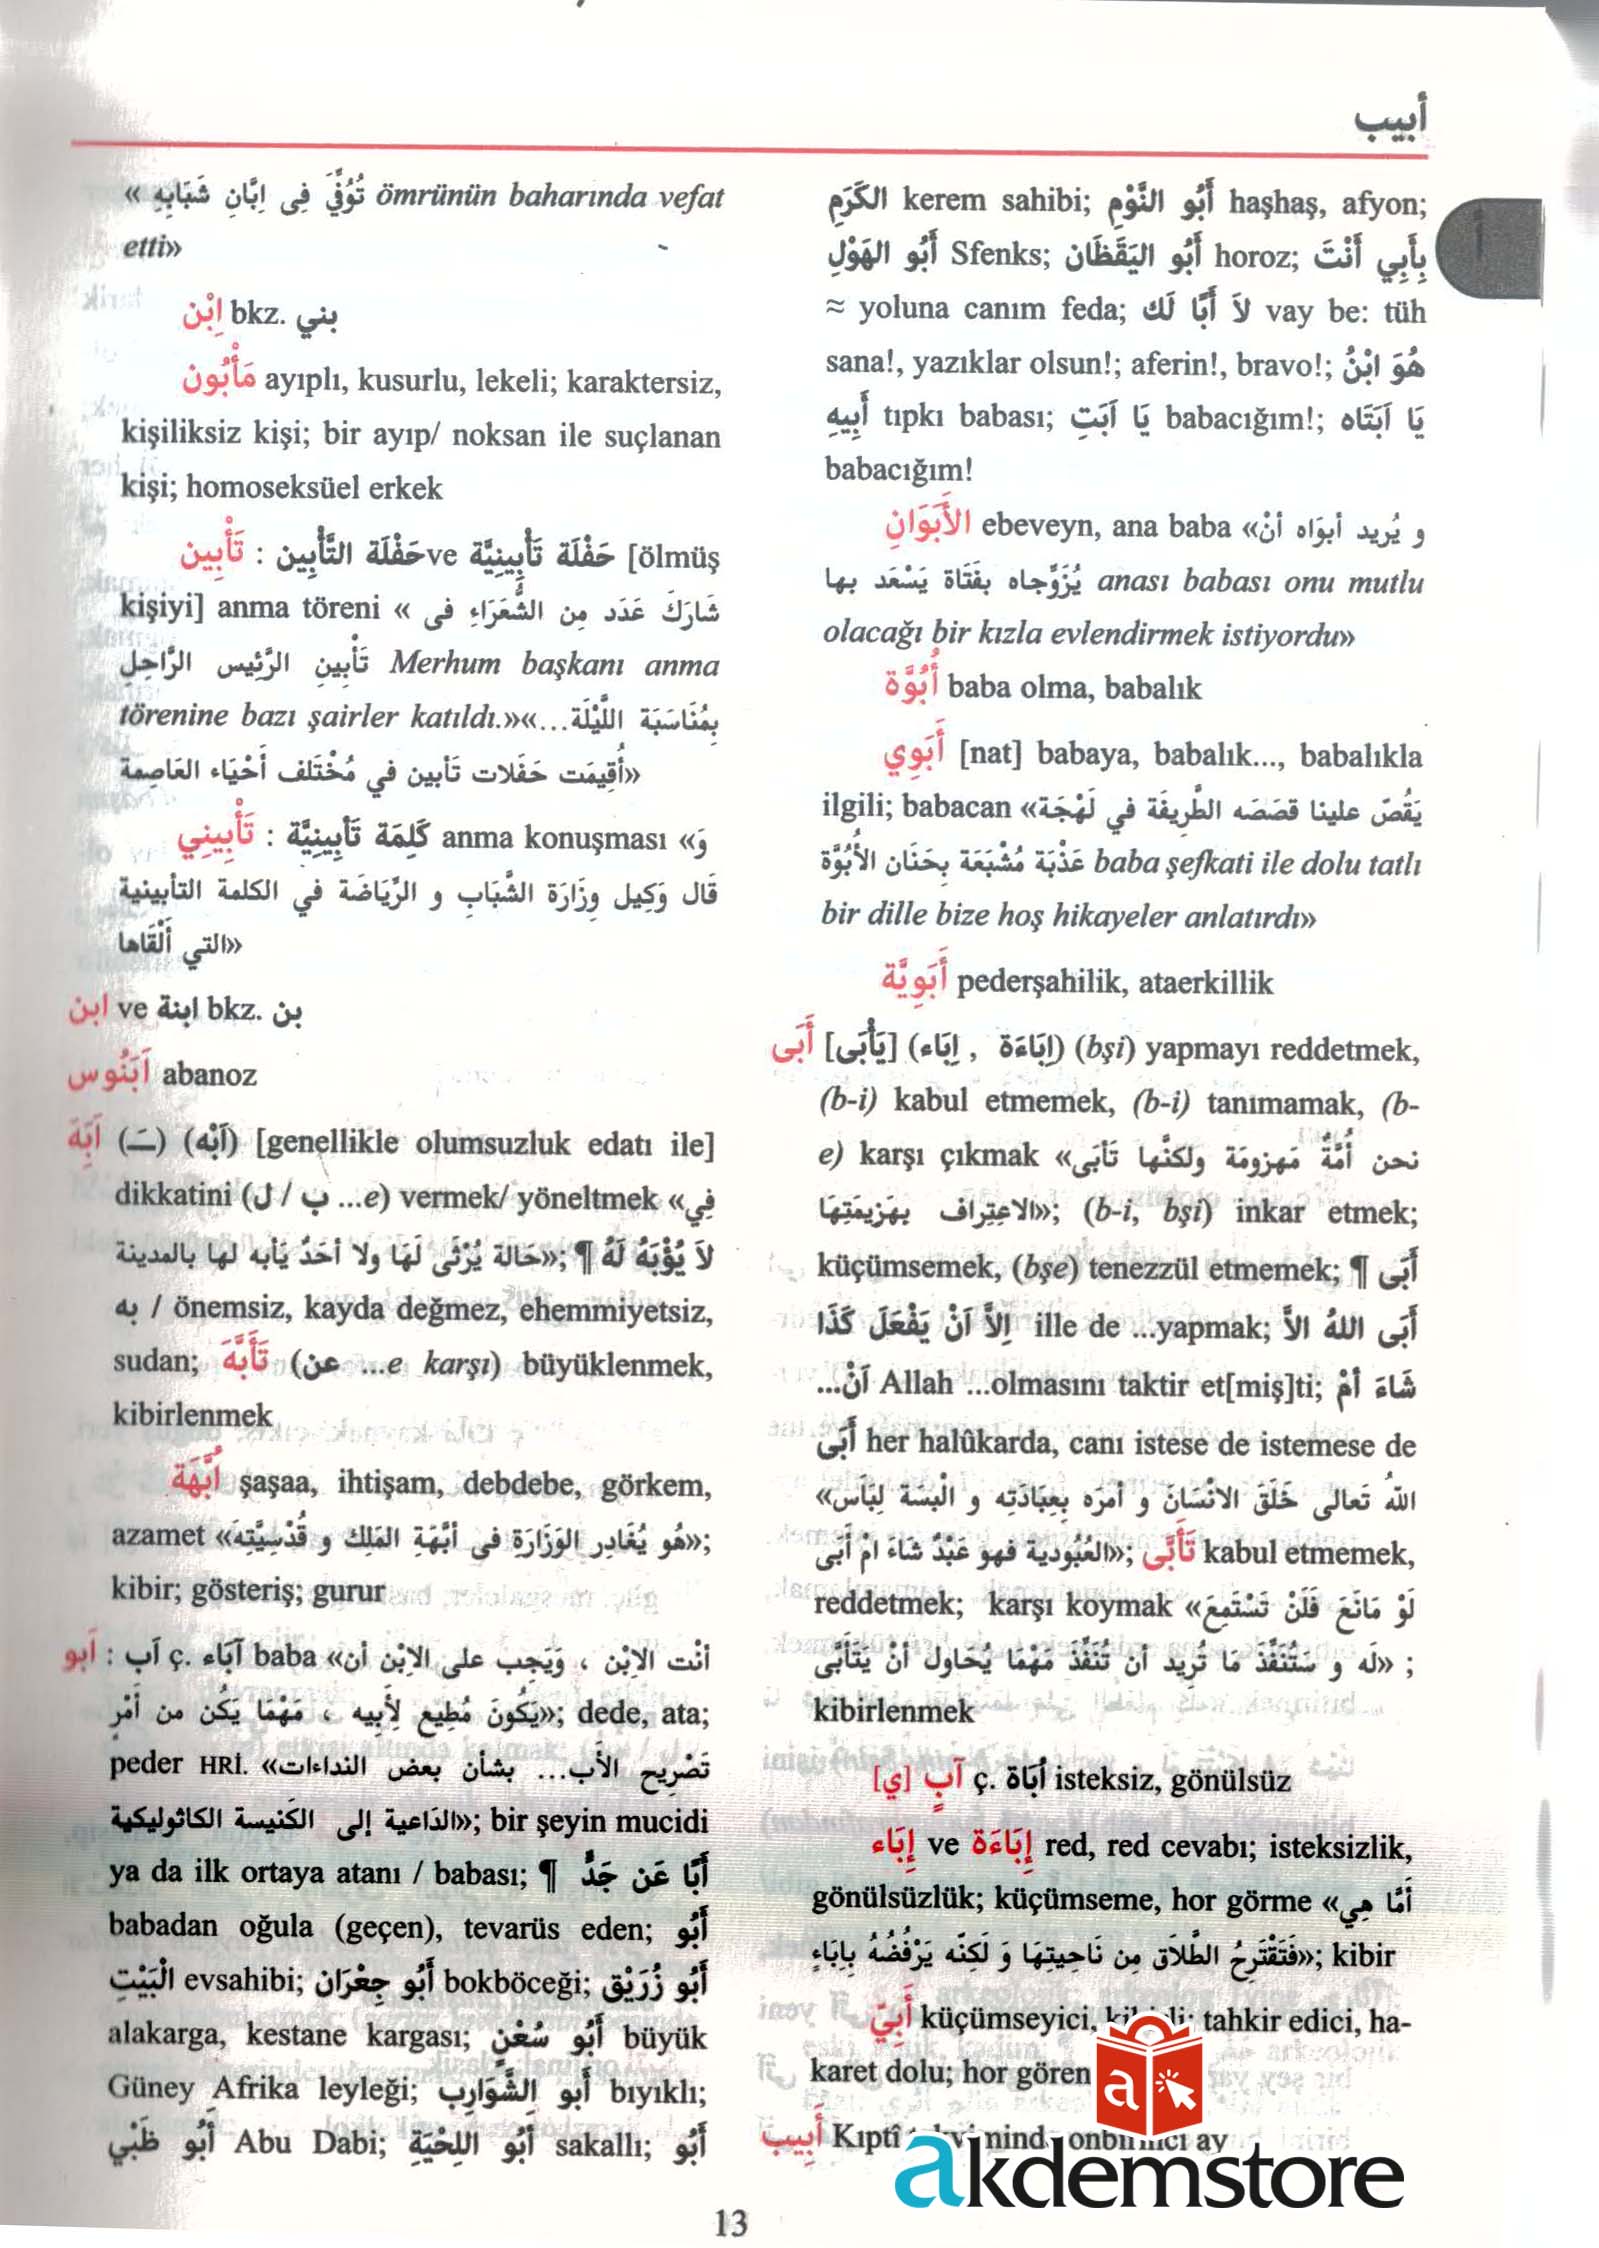 أبيب
« تُوُفِّيَ فِى اِبَّانِ شَبَابِهِ ömrünün baharında vefat
etti»
اِبْن bkz. بني
مَأْبُون ayıplı, kusurlu, lekeli; karaktersiz,
kişiliksiz kişi; bir ayıp/ noksan ile suçlanan
kişi; homoseksüel erkek
تَأْبِين : حَفْلَة التَّأْبِين ve حَفْلَة تَأْبِينِيَّة [ölmüş
kişiyi] anma töreni « شَارَكَ عَدَد مِن الشُّعَرَاءِ فى
تَأْبِينِ الرَّئِيس الرَّاحِلِ Merhum başkanı anma
törenine bazı şairler katıldı.»«...بِمُنَاسَبَة اللَّيْلَة
أُقِيمَت حَفَلات تَأبين في مُخْتَلَف أَحْيَاء العَاصِمة»
تَأْبِينِي : كَلِمَة تَأبِينِيَّة anma konuşması «وَ
قَال وَكِيل وِزَارَة الشَّبَابِ و الرِّيَاضَة في الكلمة التأبينية
التي أَلْقَاها»
ابن ve ابنة bkz. بن
آبَنُوس abanoz
اَبِهَ (ـَ) (اَبْه) [genellikle olumsuzluk edatı ile]
dikkatini (ب / ل ...e) vermek/ yöneltmek «فِي
حَالة يُرْثَى لَهَا ولا أحَدٌ يَأبه لها بالمدينة»; ¶ لاَ يُؤْبَهُ لَهُ
به / önemsiz, kayda değmez, ehemmiyetsiz,
sudan; تَأَبَّهَ (عن ...e karşı) büyüklenmek,
kibirlenmek
اُبَّهَة şaşaa, ihtişam, debdebe, görkem,
azamet «هُو يُغَادِر الوَزَارَة فى أبَّهَةِ المَلِك و قُدْسِيَّتِه»;
kibir; gösteriş; gurur
اَبو : اَب ç. آبَاء baba «أنْت الاِبْن ، وَيَجِب على الاِبْن أن
يَكُونَ مُطِيع لِأَبِيه ، مَهْمَا يَكُن من أَمْرٍ»; dede, ata;
peder HRİ. «تَصْرِيح الأَب... بشأن بعض النداءات
الدَاعية إلى الكَنيسة الكاثوليكية»; bir şeyin mucidi
ya da ilk ortaya atanı / babası; ¶ أَبًا عَن جَدٍّ
babadan oğula (geçen), tevarüs eden; أَبُو
الْبَيْتِ evsahibi; أَبُو جِعْرَان bokböceği; أَبُو زُرَيْق
alakarga, kestane kargası; أَبُو سُعْنٍ büyük
Güney Afrika leyleği; أَبو الشَّوَارِب bıyıklı;
أَبُو ظَبْي Abu Dabi; أَبُو اللِحْيَةِ sakallı; أَبُو
الكَرَمِ kerem sahibi; أَبُو النَّوْمِ haşhaş, afyon;
أَبُو الهَوْلِ Sfenks; أَبُو اليَقَظَان horoz; بِأَبِي أَنْتَ
≈ yoluna canım feda; لاَ أَبَا لَك vay be: tüh
sana!, yazıklar olsun!; aferin!, bravo!; هُوَ ابْنُ
أَبِيهِ tıpkı babası; يَا اَبَتِ babacığım!; يَا اَبَتَاه
babacığım!
الأَبَوَانِ ebeveyn, ana baba «و يُريد أبوَاه أنْ
يُزَوِّجاه بفَتَاة يَسْعَد بها anası babası onu mutlu
olacağı bir kızla evlendirmek istiyordu»
أُبُوَّة baba olma, babalık
أَبَوِي [nat] babaya, babalık..., babalıkla
ilgili; babacan «يَقُصّ علينا قصَصَه الطَّرِيفَة في لَهْجَة
عَذْبَة مُشْبَعَة بِحَنَان الأُبُوَّة baba şefkati ile dolu tatlı
bir dille bize hoş hikayeler anlatırdı»
أَبَوِيَّة pederşahilik, ataerkillik
أَبَى [يَأْبَى] (اِبَاءَة , اِبَاء) (bşi) yapmayı reddetmek,
(b-i) kabul etmemek, (b-i) tanımamak, (b-
e) karşı çıkmak «نحن أُمَّةٌ مَهزومَة ولكنَّها تَأبَى
الاعتِرَاف بهَزِيمَتِهَا»; (b-i, bşi) inkar etmek;
küçümsemek, (bşe) tenezzül etmemek; ¶ أَبَى
اِلاَّ اَنْ يَفْعَلَ كَذَا ille de ...yapmak; أَبَى اللهُ الاَّ
اَنْ... Allah ...olmasını taktir et[miş]ti; شَاءَ أمْ
أَبَى her halûkarda, canı istese de istemese de
«اللهُ تَعالى خَلَق الانْسَان و أمَرَه بِعِبَادَتِه و الْبسَهُ لِبَاسَ
العُبُودية فهو عَبْدٌ شاءَ امْ أَبَى»; تَأَبَّى kabul etmemek,
reddetmek; karşı koymak «لَوْ مَانَعَ فَلَنْ تَسْتَمِعَ
لَه و سَتُنَفِّذَ مَا تُرِيد أن تُنَفِّذَ مَهْمَا يُحَاول أنْ يَتَأَبَّى» ;
kibirlenmek
آبٍ [ي] ç. أبَاة isteksiz, gönülsüz
إِبَاء ve إِبَاءَة red, red cevabı; isteksizlik,
gönülsüzlük; küçümseme, hor görme «أمَّا هِي
فَتَقْتَرِحُ الطَّلاَق مِن نَاحِيتِهَا وَ لَكِنَّه يَرْفُضُهُ بِاِبَاءٍ»; kibir
أَبِيّ küçümseyici, tahkir edici, ha-
karet dolu; hor gören
أَبِيب Kıptî onbirinci ay
13
a
akdemstore